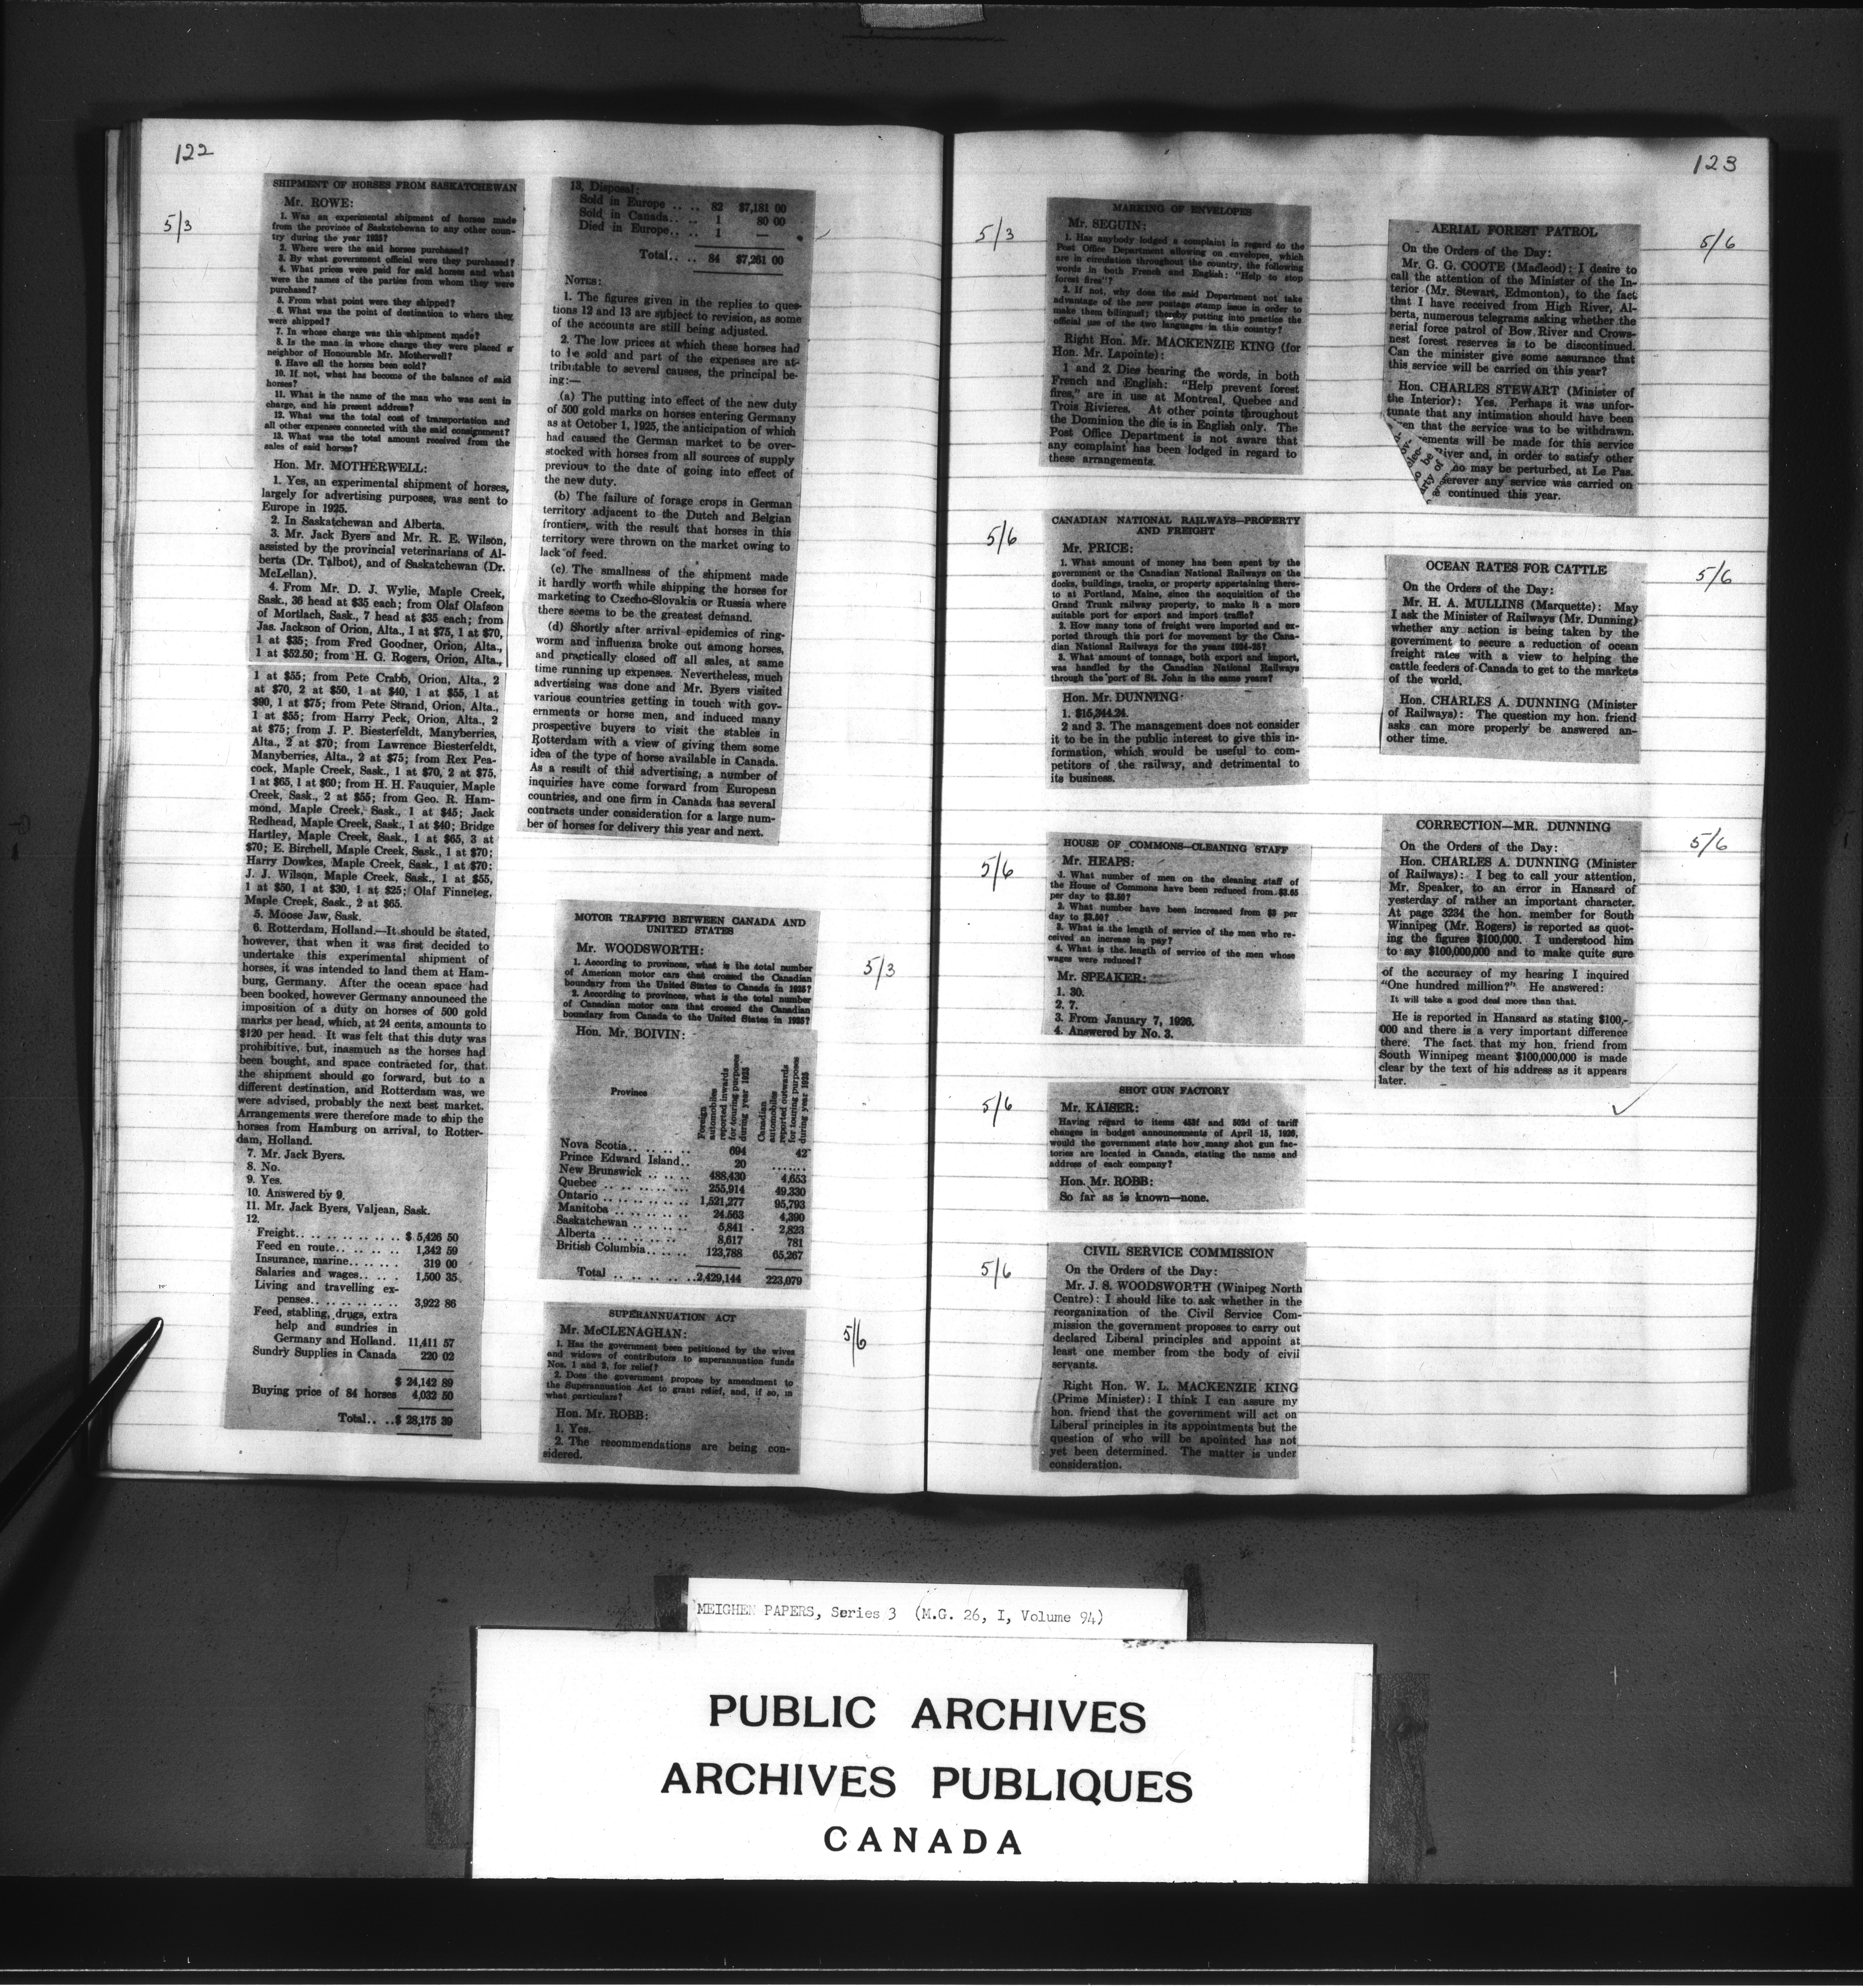 122
5/3
SHIPMENT OF HORSES FROM SASKATCHEWAN
Mr. ROWE:
1. Was an experimental shipment of horses made
from the province of Saskatchewan to any other coun-
try during the year 1925?
2. Where were the said horses purchased?
3. By what government official were they purchased?
4. What prices were paid for said horses and what
were the names of the parties from whom they were
purchased?
5. From what point were they shipped?
6. What was the point of destination to where they
were shipped?
7. In whose charge was this shipment made?
8. Is the man in whose charge they were placed a
neighbor of Honourable Mr. Motherwell?
9. Have all the horses been sold?
10. If not, what has become of the balance of said
horses?
11. What is the name of the man who was sent in
charge, and his present address?
12. What was the total cost of transportation and
all other expenses connected with the said consignment?
13. What was the total amount received from the
sales of said horses?
Hon. Mr. MOTHERWELL:
1. Yes, an experimental shipment of horses,
largely for advertising purposes, was sent to
Europe in 1925.
2. In Saskatchewan and Alberta.
3. Mr. Jack Byers and Mr. R. E. Wilson,
assisted by the provincial veterinarians of Al-
berta (Dr. Talbot), and of Saskatchewan (Dr.
McLellan).
4. From Mr. D. J. Wylie, Maple Creek,
Sask., 36 head at $35 each; from Olaf Olafson
of Mortlach, Sask., 7 head at $35 each; from
Jas. Jackson of Orion, Alta., 1 at $75, 1 at $70,
1 at $35; from Fred Goodner, Orion, Alta.,
1 at $52.50; from H. G. Rogers, Orion, Alta.,
1 at $55; from Pete Crabb, Orion, Alta., 2
at $70, 2 at $50, 1 at $40, 1 at $55, 1 at
$90, 1 at $75; from Pete Strand, Orion, Alta.,
1 at $55; from Harry Peck, Orion, Alta., 2
at $75; from J. P. Biesterfeldt, Manyberries,
Alta., 2 at $70; from Lawrence Biesterfeldt,
Manyberries, Alta., 2 at $75; from Rex Pea-
cock, Maple Creek, Sask., 1 at $70, 2 at $75,
1 at $65, 1 at $60; from H. H. Fauquier, Maple
Creek, Sask., 2 at $55; from Geo. R. Ham-
mond, Maple Creek, Sask., 1 at $45; Jack
Redhead, Maple Creek, Sask., 1 at $40; Bridge
Hartley, Maple Creek, Sask., 1 at $65, 3 at
$70; E. Birchell, Maple Creek, Sask., 1 at $70;
Harry Dowkes, Maple Creek, Sask., 1 at $70;
J. J. Wilson, Maple Creek, Sask., 1 at $55,
1 at $50, 1 at $30, 1 at $25; Olaf Finneteg,
Maple Creek, Sask., 2 at $65.
5. Moose Jaw, Sask.
6. Rotterdam, Holland.—It should be stated,
however, that when it was first decided to
undertake this experimental shipment of
horses, it was intended to land them at Ham-
burg, Germany. After the ocean space had
been booked, however Germany announced the
imposition of a duty on horses of 500 gold
marks per head, which, at 24 cents, amounts to
$120 per head. It was felt that this duty was
prohibitive, but, inasmuch as the horses had
been bought, and space contracted for, that
the shipment should go forward, but to a
different destination, and Rotterdam was, we
were advised, probably the next best market.
Arrangements were therefore made to ship the
horses from Hamburg on arrival, to Rotter-
dam, Holland.
7. Mr. Jack Byers.
8. No.
9. Yes.
10. Answered by 9.
11. Mr. Jack Byers, Valjean, Sask.
12.
Freight.. .. .. .. .. .. .. .. $ 5,426 50
Feed en route.. .. .. .. .. 1,342 59
Insurance, marine.. .. .. .. 319 00
Salaries and wages.. .. .. 1,500 35
Living and travelling ex-
penses.. .. .. .. .. .. .. 3,922 86
Feed, stabling, drugs, extra
help and sundries in
Germany and Holland. 11,411 57
Sundry Supplies in Canada 220 02
$ 24,142 89
Buying price of 84 horses 4,032 50
Total.. ..$ 28,175 39
13. Disposal:
Sold in Europe .. .. .. 82 $7,181 00
Sold in Canada.. .. .. 1 80 00
Died in Europe.. .. .. 1 —
Total.. .. 84 $7,261 00
NOTES:
1. The figures given in the replies to ques-
tions 12 and 13 are subject to revision, as some
of the accounts are still being adjusted.
2. The low prices at which these horses had
to be sold and part of the expenses are at-
tributable to several causes, the principal be-
ing:—
(a) The putting into effect of the new duty
of 500 gold marks on horses entering Germany
as at October 1, 1925, the anticipation of which
had caused the German market to be over-
stocked with horses from all sources of supply
previous to the date of going into effect of
the new duty.
(b) The failure of forage crops in German
territory adjacent to the Dutch and Belgian
frontiers, with the result that horses in this
territory were thrown on the market owing to
lack of feed.
(c) The smallness of the shipment made
it hardly worth while shipping the horses for
marketing to Czecho-Slovakia or Russia where
there seems to be the greatest demand.
(d) Shortly after arrival epidemics of ring-
worm and influenza broke out among horses,
and practically closed off all sales, at same
time running up expenses. Nevertheless, much
advertising was done and Mr. Byers visited
various countries getting in touch with gov-
ernments or horse men, and induced many
prospective buyers to visit the stables in
Rotterdam with a view of giving them some
idea of the type of horse available in Canada.
As a result of this advertising, a number of
inquiries have come forward from European
countries, and one firm in Canada has several
contracts under consideration for a large num-
ber of horses for delivery this year and next.
MOTOR TRAFFIC BETWEEN CANADA AND
UNITED STATES
5/3
Mr. WOODSWORTH:
1. According to provinces, what is the total number
of American motor cars that crossed the Canadian
boundary from the United States to Canada in 1925?
2. According to provinces, what is the total number
of Canadian motor cars that crossed the Canadian
boundary from Canada to the United States in 1925?
Hon. Mr. BOIVIN:
Province
Foreign automobiles reported inwards for touring purposes during year 1925
Canadian automobiles reported outwards for touring purposes during year 1925
Nova Scotia.. .. .. .. .. 694 42
Prince Edward Island.. 20 .......
New Brunswick .. .. .. .. 488,430 4,653
Quebec .. .. .. .. .. .. .. 255,914 49,330
Ontario .. .. .. .. .. .. .. 1,521,277 95,793
Manitoba .. .. .. .. .. .. 24,563 4,390
Saskatchewan .. .. .. .. 5,841 2,823
Alberta .. .. .. .. .. .. 8,617 781
British Columbia.. .. .. 123,788 65,267
Total .. .. .. .. .. ..2,429,144 223,079
SUPERANNUATION ACT
5/6
Mr. McCLENAGHAN:
1. Has the government been petitioned by the wives
and widows of contributors to superannuation funds
Nos. 1 and 2, for relief?
2. Does the government propose by amendment to
the Superannuation Act to grant relief, and, if so, in
what particulars?
Hon. Mr. ROBB:
1. Yes.
2. The recommendations are being con-
sidered.
123
5/3
MARKING OF ENVELOPES
Mr. SEGUIN:
1. Has anybody lodged a complaint in regard to the
Post Office Department allowing on envelopes, which
are in circulation throughout the country, the following
words in both French and English: "Help to stop
forest fires"?
2. If not, why does the said Department not take
advantage of the new postage stamp issue in order to
make them bilingual; thereby putting into practice the
official use of the two languages in this country?
Right Hon. Mr. MACKENZIE KING (for
Hon. Mr. Lapointe):
1 and 2. Dies bearing the words, in both
French and English: "Help prevent forest
fires," are in use at Montreal, Quebec and
Trois Rivieres. At other points throughout
the Dominion the die is in English only. The
Post Office Department is not aware that
any complaint has been lodged in regard to
these arrangements.
5/6
CANADIAN NATIONAL RAILWAYS—PROPERTY
AND FREIGHT
Mr. PRICE:
1. What amount of money has been spent by the
government or the Canadian National Railways on the
docks, buildings, tracks, or property appertaining there-
to at Portland, Maine, since the acquisition of the
Grand Trunk railway property, to make it a more
suitable port for export and import traffic?
2. How many tons of freight were imported and ex-
ported through this port for movement by the Cana-
dian National Railways for the years 1924-25?
3. What amount of tonnage, both export and import,
was handled by the Canadian National Railways
through the port of St. John in the same years?
Hon. Mr. DUNNING:
1. $15,344.24.
2 and 3. The management does not consider
it to be in the public interest to give this in-
formation, which would be useful to com-
petitors of the railway, and detrimental to
its business.
5/6
HOUSE OF COMMONS—CLEANING STAFF
Mr. HEAPS:
1. What number of men on the cleaning staff of
the House of Commons have been reduced from $3.65
per day to $3.50?
2. What number have been increased from $3 per
day to $3.50?
3. What is the length of service of the men who re-
ceived an increase in pay?
4. What is the length of service of the men whose
wages were reduced?
Mr. SPEAKER:
1. 30.
2. 7.
3. From January 7, 1926.
4. Answered by No. 3.
5/6
SHOT GUN FACTORY
Mr. KAISER:
Having regard to items 453f and 502d of tariff
changes in budget announcements of April 15, 1926,
would the government state how many shot gun fac-
tories are located in Canada, stating the name and
address of each company?
Hon. Mr. ROBB:
So far as is known—none.
5/6
CIVIL SERVICE COMMISSION
On the Orders of the Day:
Mr. J. S. WOODSWORTH (Winipeg North
Centre): I should like to ask whether in the
reorganization of the Civil Service Com-
mission the government proposes to carry out
declared Liberal principles and appoint at
least one member from the body of civil
servants.
Right Hon. W. L. MACKENZIE KING
(Prime Minister): I think I can assure my
hon. friend that the government will act on
Liberal principles in its appointments but the
question of who will be apointed has not
yet been determined. The matter is under
consideration.
5/6
AERIAL FOREST PATROL
On the Orders of the Day:
Mr. G. G. COOTE (Macleod): I desire to
call the attention of the Minister of the In-
terior (Mr. Stewart, Edmonton), to the fact
that I have received from High River, Al-
berta, numerous telegrams asking whether the
aerial force patrol of Bow River and Crows-
nest forest reserves is to be discontinued.
Can the minister give some assurance that
this service will be carried on this year?
Hon. CHARLES STEWART (Minister of
the Interior): Yes. Perhaps it was unfor-
tunate that any intimation should have been
en that the service was to be withdrawn.
ements will be made for this service
River and, in order to satisfy other
ho may be perturbed, at Le Pas.
erever any service was carried on
continued this year.
5/6
OCEAN RATES FOR CATTLE
On the Orders of the Day:
Mr. H. A. MULLINS (Marquette): May
I ask the Minister of Railways (Mr. Dunning)
whether any action is being taken by the
government to secure a reduction of ocean
freight rates with a view to helping the
cattle feeders of Canada to get to the markets
of the world.
Hon. CHARLES A. DUNNING (Minister
of Railways): The question my hon. friend
asks can more properly be answered an-
other time.
5/6
CORRECTION—MR. DUNNING
On the Orders of the Day:
Hon. CHARLES A. DUNNING (Minister
of Railways): I beg to call your attention,
Mr. Speaker, to an error in Hansard of
yesterday of rather an important character.
At page 3234 the hon. member for South
Winnipeg (Mr. Rogers) is reported as quot-
ing the figures $100,000. I understood him
to say $100,000,000 and to make quite sure
of the accuracy of my hearing I inquired
"One hundred million?" He answered:
It will take a good deal more than that.
He is reported in Hansard as stating $100,-
000 and there is a very important difference
there. The fact that my hon. friend from
South Winnipeg meant $100,000,000 is made
clear by the text of his address as it appears
later.
MEIGHEN PAPERS, Series 3 (M.G. 26, I, Volume 94)
PUBLIC ARCHIVES
ARCHIVES PUBLIQUES
CANADA